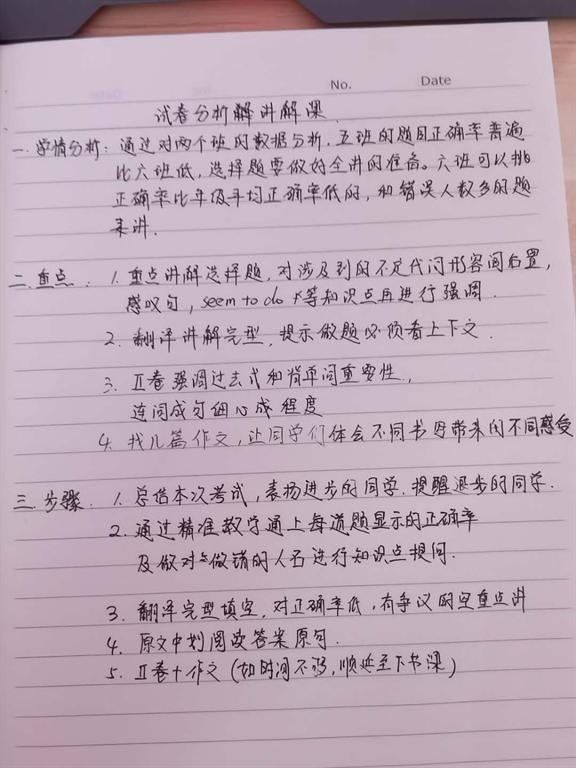 No. Date
试卷分析解讲解课
一.学情分析:通过对两个班的数据分析,五班的题目正确率普遍
比六班低,选择题要做好全讲的准备。六班可以挑
正确率比年级平均正确率低的,和错误人数多的题
来讲.
二.重点: 1.重点讲解选择题,对涉及到的不定代词形容词后置,
感叹句,seem to do sth等知识点再进行强调.
2.翻译讲解完型,提示做题必须看上下文.
3.II卷强调过去式和背单词重要性,
连词成句细心成程度
4.找几篇作文,让同学们体会不同书写带来的不同感受
三.步骤. 1.总结本次考试,表扬进步的同学.提醒退步的同学.
2.通过精准教学通上每道题显示的正确率
及做对与做错的人名进行知识点提问.
3.翻译完型填空,对正确率低,有争议的空重点讲
4.原文中划阅读答案原句.
5.II卷+作文(如时间不够,顺延至下节课)